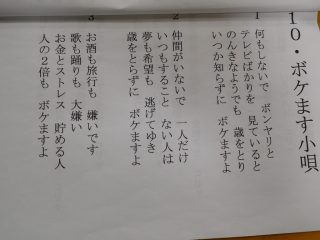 10・ボケます小唄
1
何もしないで ボンヤリと
テレビばかりを 見ていると
のんきなようでも 歳をとり
いつか知らずに ボケますよ
2
仲間がいないで 一人だけ
いつもすること ない人は
夢も希望も 逃げてゆき
歳をとらずに ボケますよ
3
お酒も旅行も 嫌いです
歌も踊りも 大嫌い
お金とストレス 貯める人
人の2倍も ボケますよ